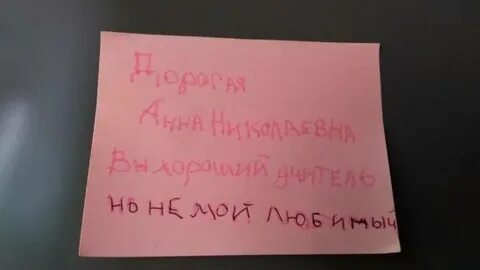 Дорогая
Анна Николаевна
Вы хороший учитель
но не мой любимый